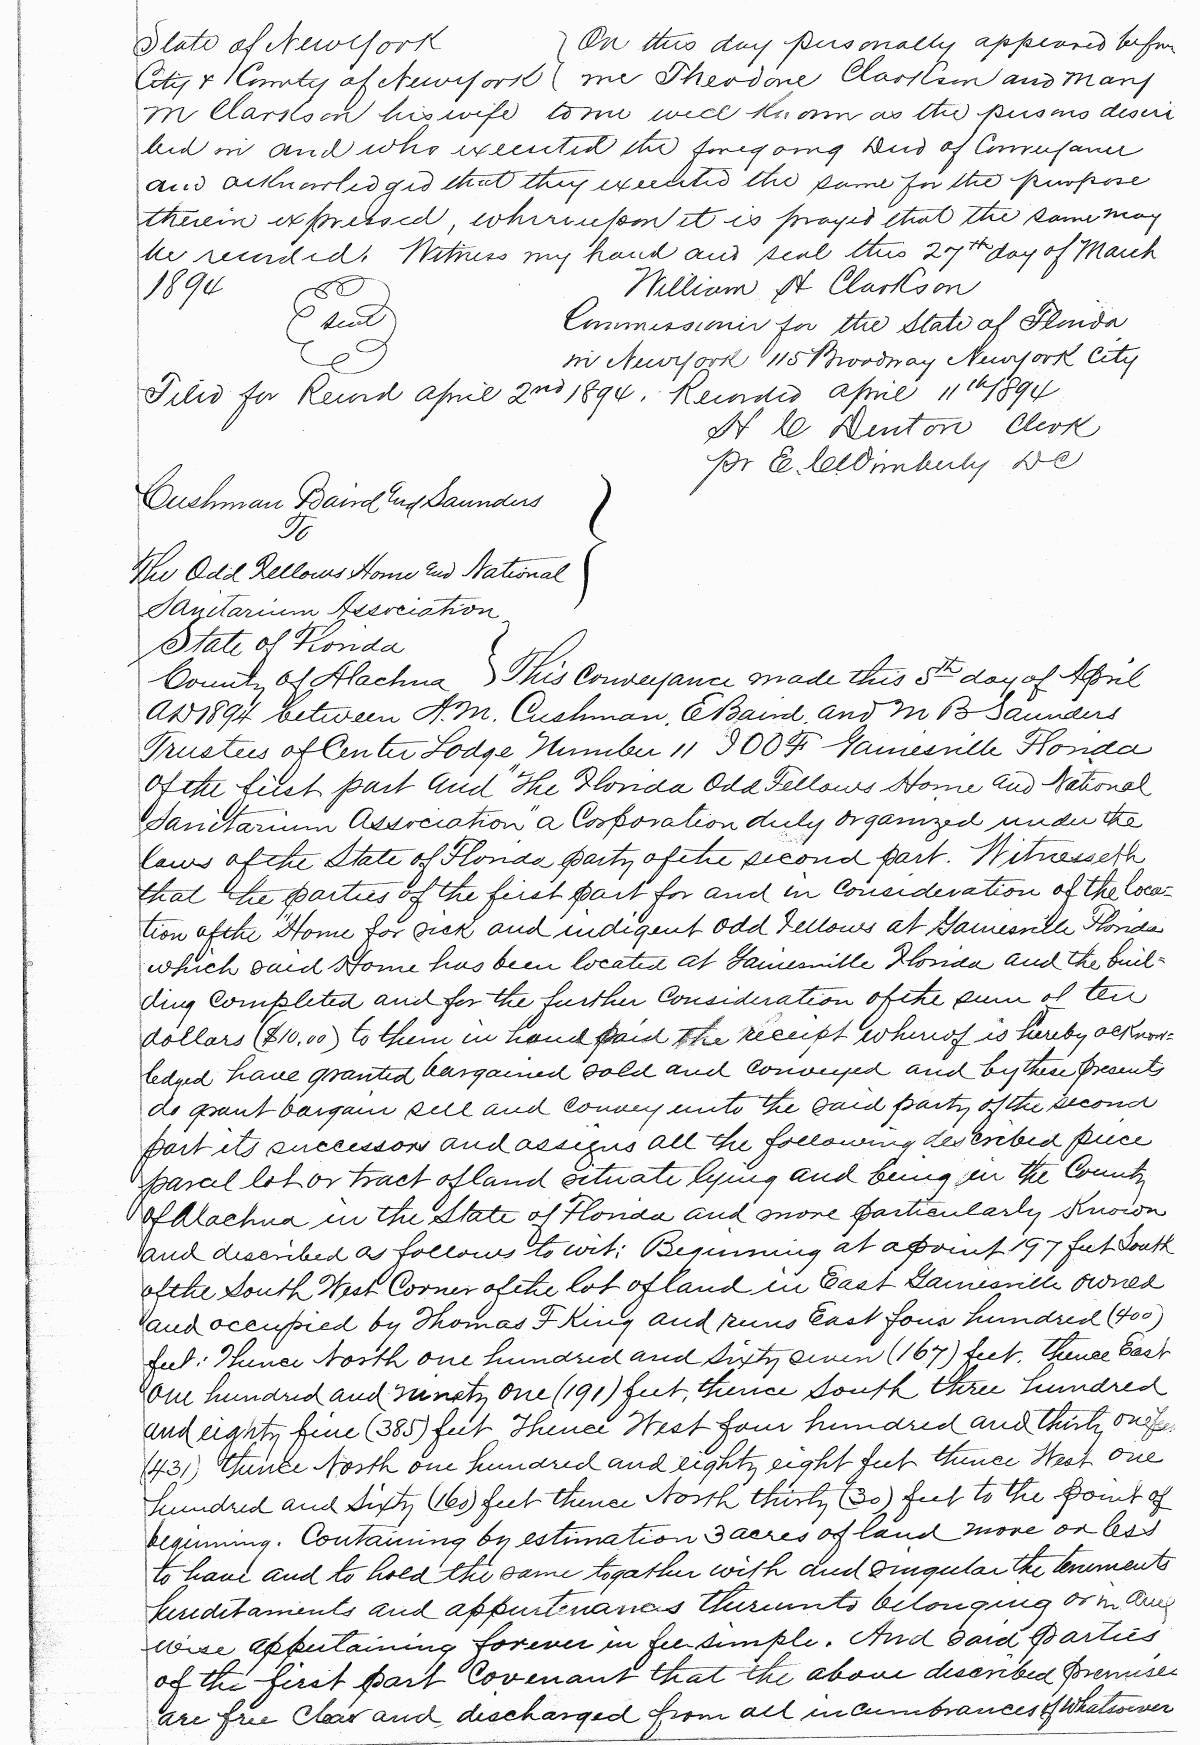 State of New York } On this day personally appeared before
City & County of New York { me Theodore Clarkson and Mary
M Clarkson his wife to me well known as the persons descri
bed in and who executed the foregoing Deed of Conveyance
and acknowledged that they executed the same for the purpose
therein expressed, whereupon it is prayed that the same may
be recorded. Witness my hand and seal this 27th day of March
1894 William H Clarkson
Seal Commissioner for the State of Florida
in New York 115 Broadway New York City
Filed for Record April 2nd 1894. Recorded April 11th 1894
H C Denton Clerk
pr E. C Wimberly DC
Cushman Baird and Saunders
To
The Odd Fellows Home and National
Sanitarium Association
State of Florida
County of Alachua } This Conveyance made this 5th day of April
AD 1894 between A. M. Cushman, E Baird, and M B Saunders
Trustees of Center Lodge Number 11 IOOF Gainesville Florida
of the first part and "The Florida Odd Fellows Home and National
Sanitarium Association" a Corporation duly organized under the
laws of the State of Florida party of the second part. Witnesseth
that the parties of the first part for and in consideration of the loca=
tion of the "Home for sick and indigent odd Fellows at Gainesville Florida
which said Home has been located at Gainesville Florida and the buil=
ding completed and for the further consideration of the sum of ten
dollars ($10.00) to them in hand paid the receipt whereof is hereby acknow=
ledged have granted bargained sold and conveyed and by these presents
do grant bargain sell and convey unto the said party of the second
part its successors and assigns all the following described piece
parcel lot or tract of land situate lying and being in the County
of Alachua in the State of Florida and more particularly Known
and described as follows to wit: Beginning at a point 197 feet South
of the South West Corner of the lot of land in East Gainesville owned
and occupied by Thomas F King and runs East four hundred (400)
feet: Thence North one hundred and Sixty seven (167) feet. thence East
one hundred and ninety one (191) feet, thence South three hundred
and eighty five (385) feet Thence West four hundred and thirty one feet
(431) thence North one hundred and eighty eight feet thence West one
hundred and Sixty (160) feet thence North thirty (30) feet to the point of
beginning. Containing by estimation 3 acres of land more or less
to have and to hold the same together with and singular the tenements
hereditaments and appurtenances thereunto belonging or in any
wise appertaining forever in fee simple. And said parties
of the first part Covenant that the above described premises
are free Clear and discharged from all incumbrances of whatsoever